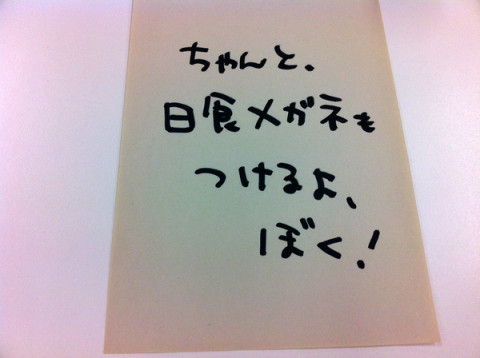 ちゃんと。
日食メガネも
つけるよ、
ぼく！